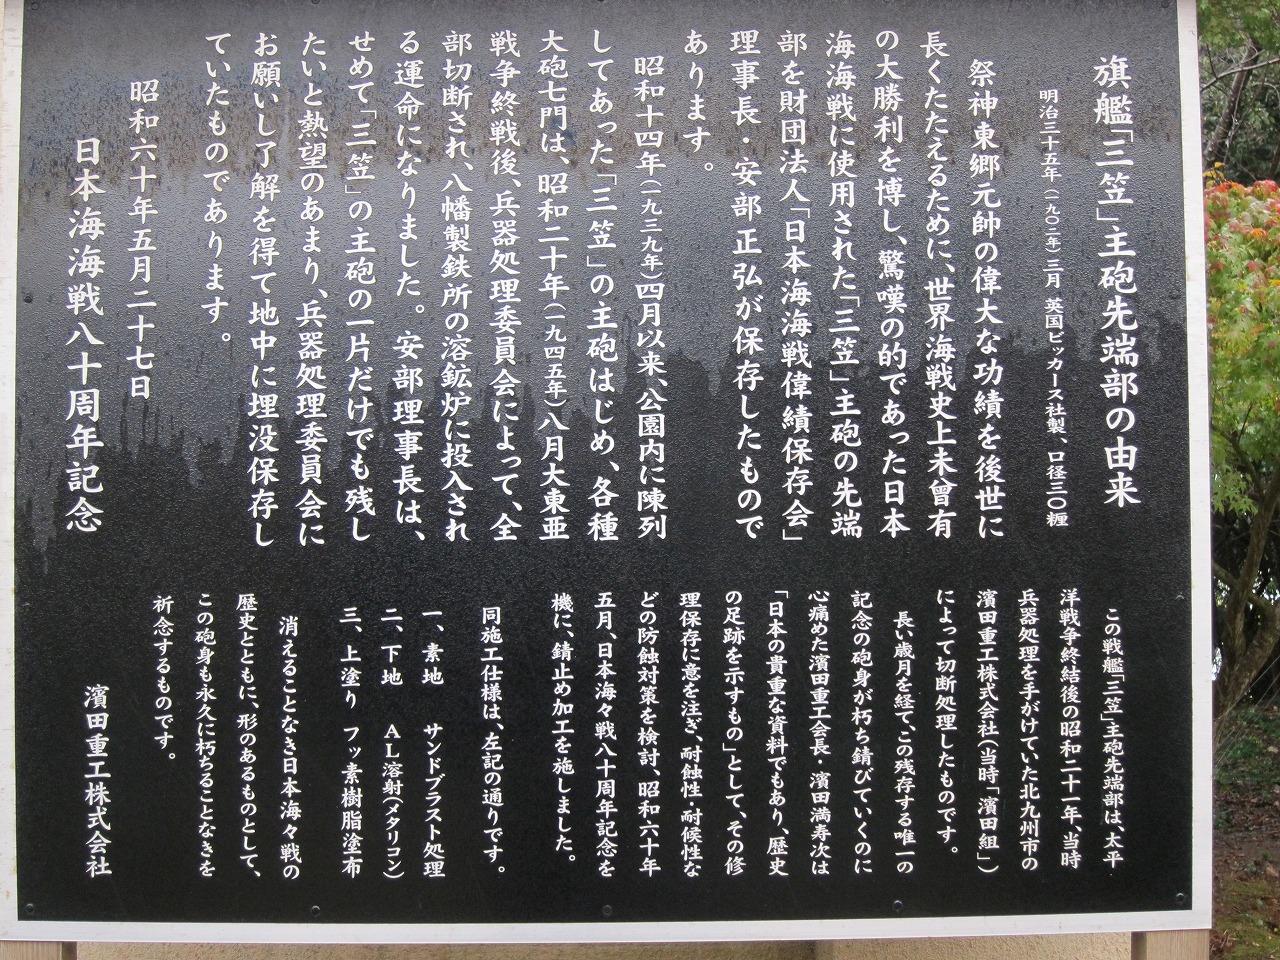 旗艦「三笠」主砲先端部の由来
明治三十五年(一九〇二年)三月 英国ビッカース社製、口径三〇糎
祭神東郷元帥の偉大な功績を後世に
長くたたえるために、世界海戦史上未曾有
の大勝利を博し、驚嘆の的であった日本
海海戦に使用された「三笠」主砲の先端
部を財団法人「日本海海戦偉績保存会」
理事長・安部正弘が保存したもので
あります。
昭和十四年(一九三九年)四月以来、公園内に陳列
してあった「三笠」の主砲はじめ、各種
大砲七門は、昭和二十年(一九四五年)八月大東亜
戦争終戦後、兵器処理委員会によって、全
部切断され、八幡製鉄所の溶鉱炉に投入され
る運命になりました。安部理事長は、
せめて「三笠」の主砲の一片だけでも残し
たいと熱望のあまり、兵器処理委員会に
お願いし了解を得て地中に埋没保存し
ていたものであります。
昭和六十年五月二十七日
日本海海戦八十周年記念
この戦艦「三笠」主砲先端部は、太平
洋戦争終結後の昭和二十一年、当時
兵器処理を手がけていた北九州市の
濱田重工株式会社(当時「濱田組」)
によって切断処理したものです。
長い歳月を経て、この残存する唯一の
記念の砲身が朽ち錆びていくのに
心痛めた濱田重工会長・濱田満寿次は
「日本の貴重な資料でもあり、歴史
の足跡を示すもの」として、その修
理保存に意を注ぎ、耐蝕性・耐候性な
どの防蝕対策を検討、昭和六十年
五月、日本海々戦八十周年記念を
機に、錆止め加工を施しました。
同施工仕様は、左記の通りです。
一、素地 サンドブラスト処理
二、下地 AL溶射(メタリコン)
三、上塗り フッ素樹脂塗布
消えることなき日本海々戦の
歴史とともに、形のあるものとして、
この砲身も永久に朽ちることなきを
祈念するものです。
濱田重工株式会社